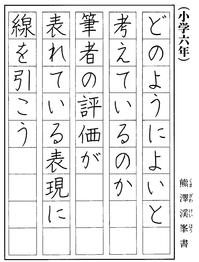 (小学六年)
どのようによいと
考えているのか
筆者の評価が
表れている表現に
線を引こう
熊澤渓峯書
くまざわけいほう